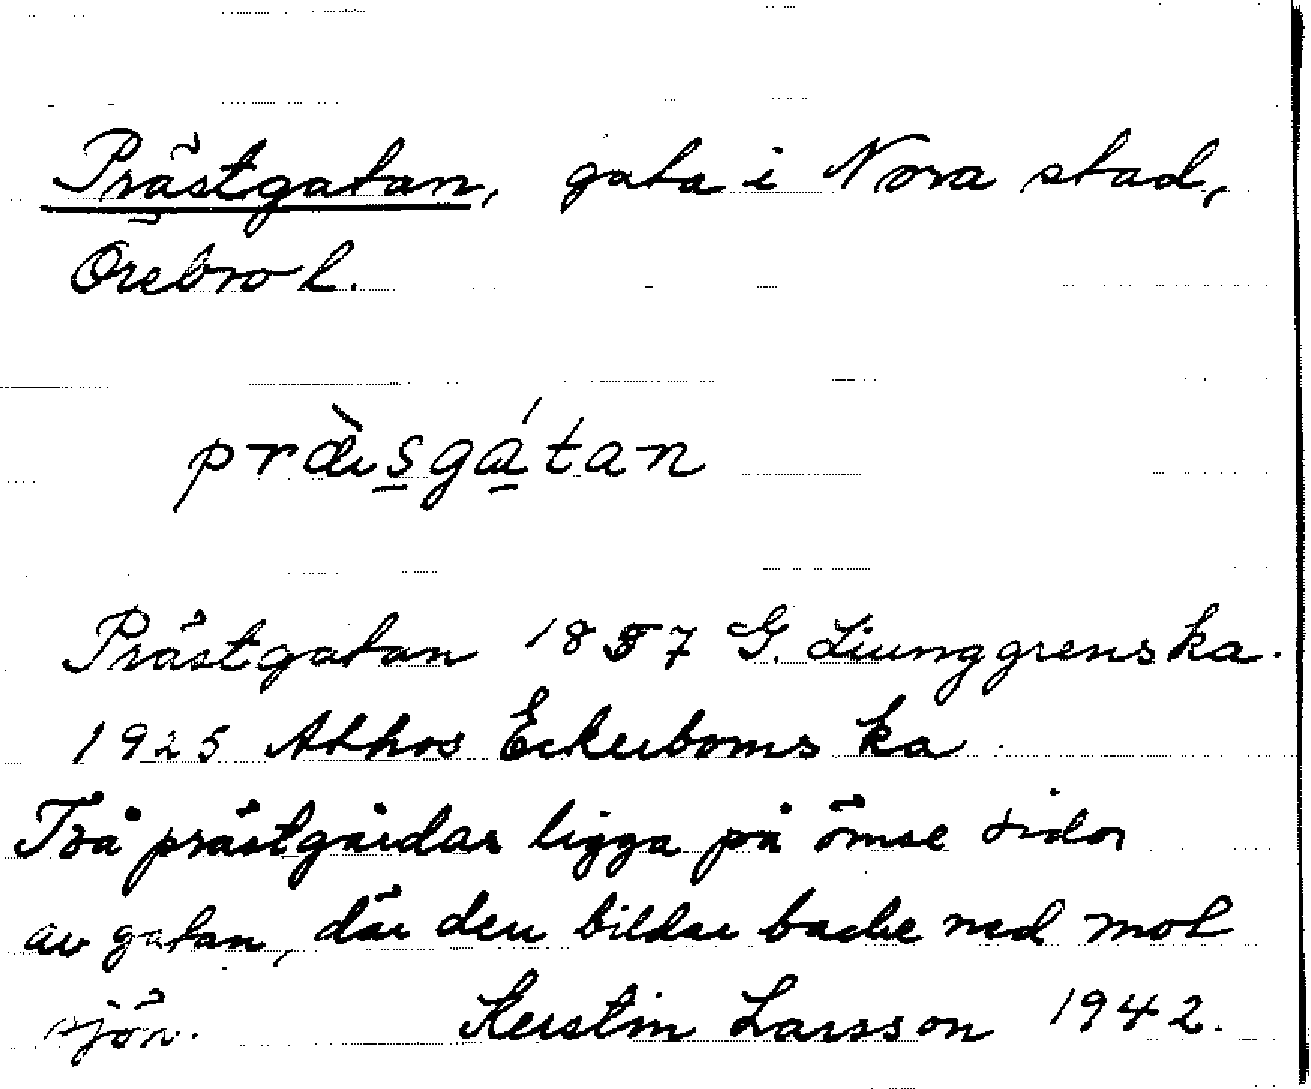 Prästgatan, gata i Nora stad,
Örebro l.
præ̀sgátan
Prästgatan 1857 G. Liunggrens ka.
1925 Athos Eckerboms ka
Två prästgårdar ligga på ömse sidor
av gatan, där den bildar backe ned mot
sjön. Kerstin Larsson 1942.